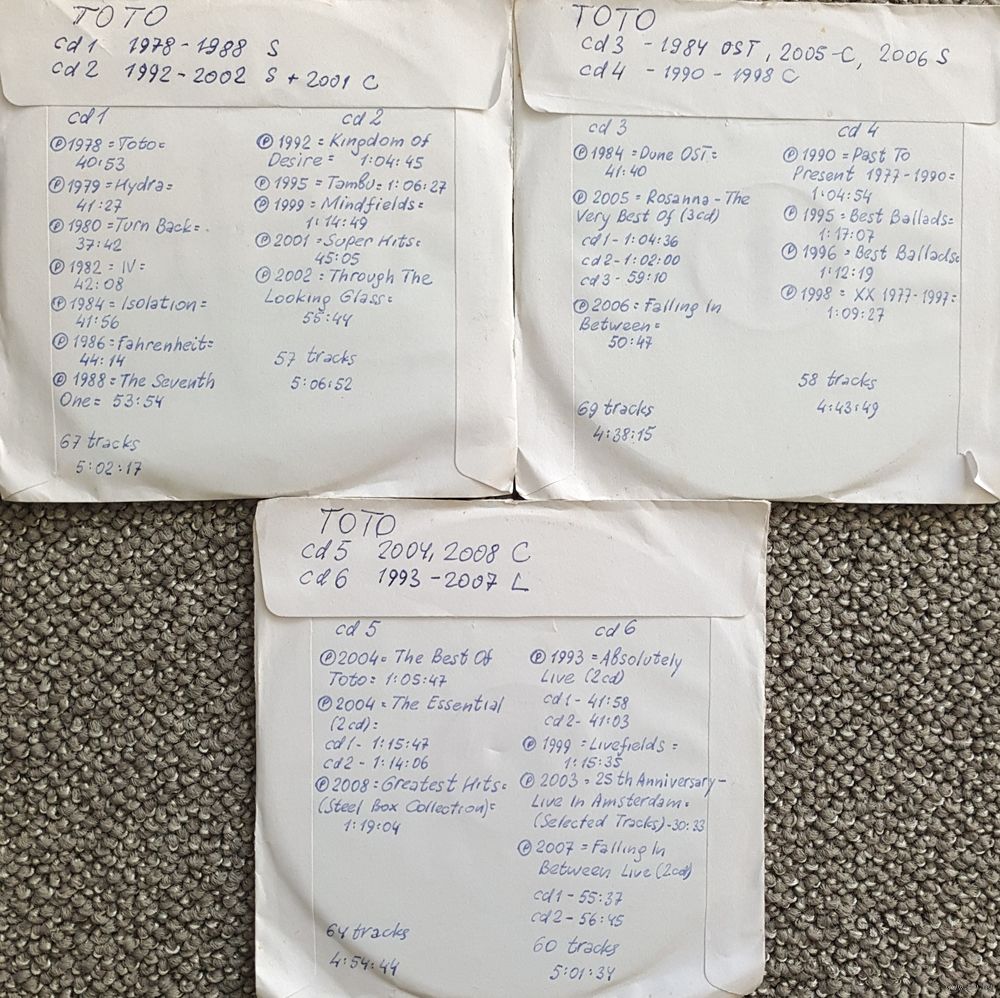 TOTO
cd 1 1978-1988 S
cd 2 1992-2002 S + 2001 C
cd 1
Ⓟ1978 = Toto=
40:53
Ⓟ1979 = Hydra=
41:27
Ⓟ1980 = Turn Back=
37:42
Ⓟ1982 = IV=
42:08
Ⓟ1984 = Isolation=
41:56
Ⓟ1986 = Fahrenheit=
44:14
Ⓟ1988 = The Seventh
One= 53:54
67 tracks
5:02:17
cd 2
Ⓟ1992 = Kingdom Of
Desire= 1:04:45
Ⓟ1995 = Tambu= 1:06:27
Ⓟ1999 = Mindfields=
1:14:49
Ⓟ2001 = Super Hits=
45:05
Ⓟ2002 = Through The
Looking Glass=
55:44
57 tracks
5:06:52
TOTO
cd 3 - 1984 OST, 2005-C, 2006 S
cd 4 - 1990 - 1998 C
cd 3
Ⓟ1984 = Dune OST=
41:40
Ⓟ2005 = Rosanna - The
Very Best Of (3cd)
cd 1 - 1:04:36
cd 2 - 1:02:00
cd 3 - 59:10
Ⓟ2006 = Falling In
Between=
50:47
69 tracks
4:38:15
cd 4
Ⓟ1990 = Past To
Present 1977-1990=
1:04:54
Ⓟ1995 = Best Ballads=
1:17:07
Ⓟ1996 = Best Ballads=
1:12:19
Ⓟ1998 = XX 1977-1997=
1:09:27
58 tracks
4:43:49
TOTO
cd 5 2004, 2008 C
cd 6 1993 - 2007 L
cd 5
Ⓟ2004 = The Best Of
Toto= 1:05:47
Ⓟ2004 = The Essential
(2cd)=
cd 1 - 1:15:47
cd 2 - 1:14:06
Ⓟ2008 = Greatest Hits=
(Steel Box Collection)=
1:19:04
64 tracks
4:54:44
cd 6
Ⓟ1993 = Absolutely
Live (2cd)
cd 1 - 41:58
cd 2 - 41:03
Ⓟ1999 = Livefields=
1:15:35
Ⓟ2003 = 25th Anniversary -
Live In Amsterdam=
(Selected Tracks) - 30:33
Ⓟ2007 = Falling In
Between Live (2cd)
cd 1 - 55:37
cd 2 - 56:45
60 tracks
5:01:34